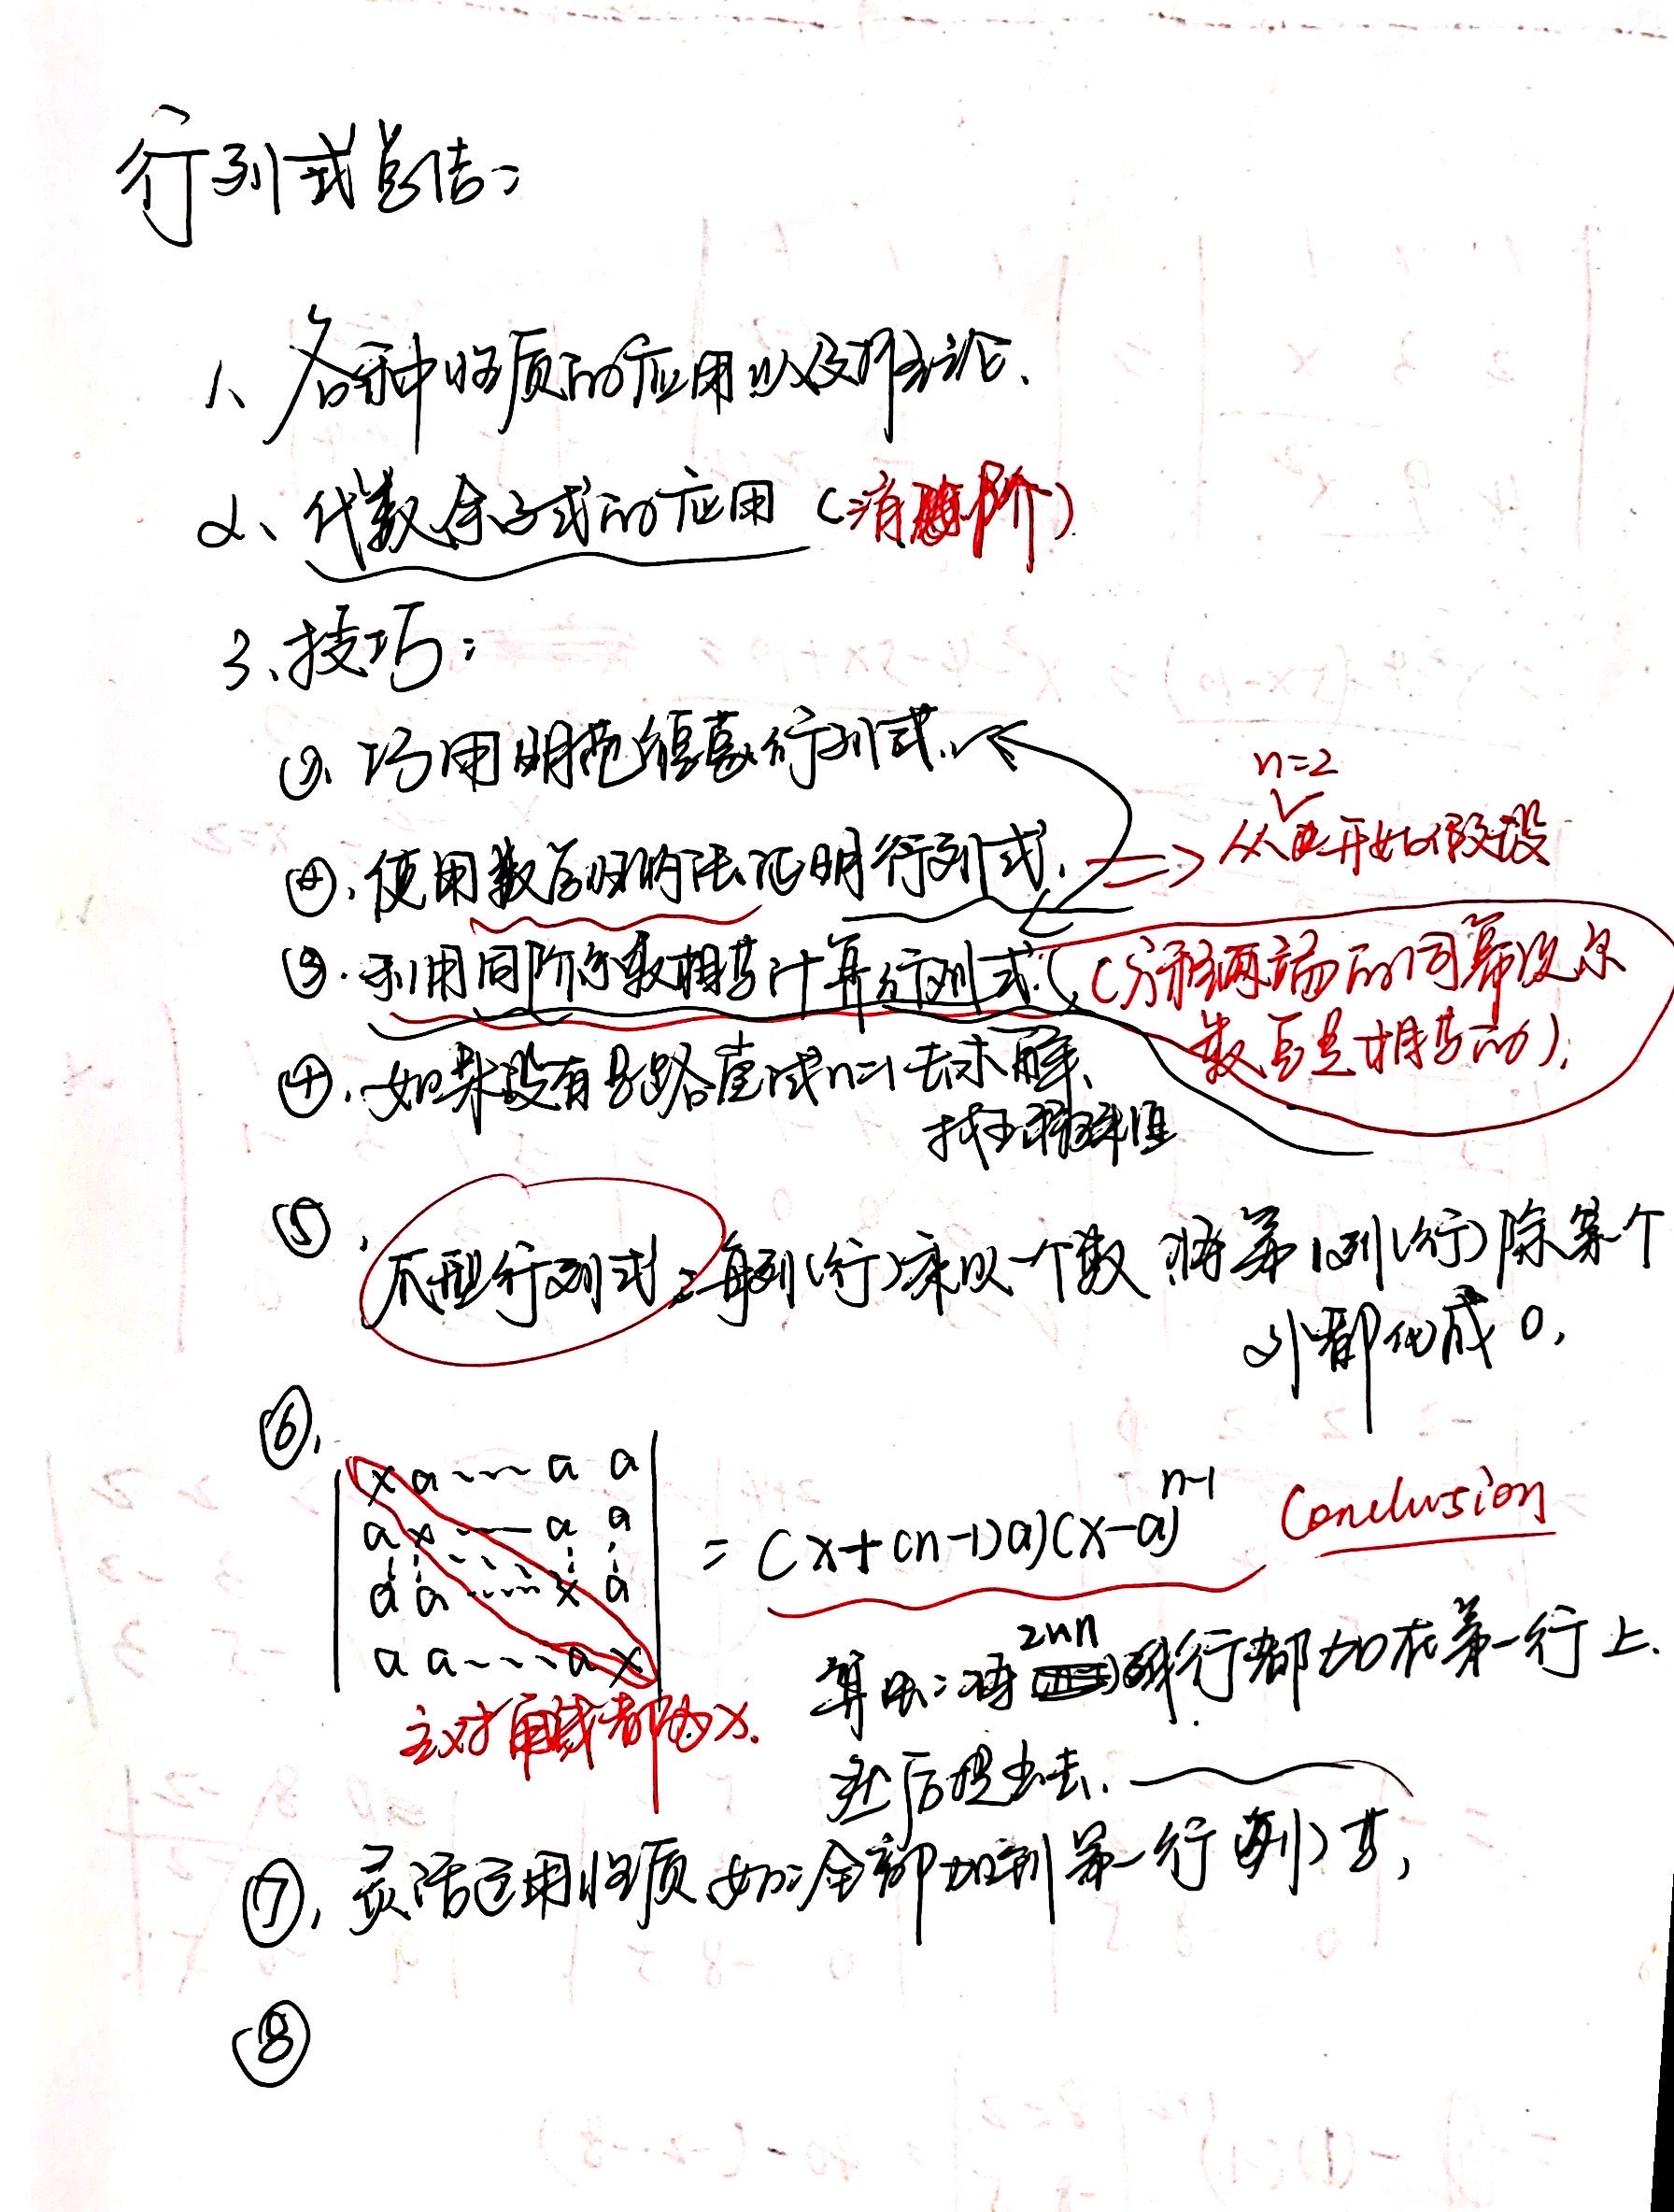 行列式总结：
1、各种性质的应用以及推论、
2、代数余子式的应用（降阶）
3、技巧：
①、巧用范德蒙行列式、
n=2
②、使用数学归纳法证明行列式、 => 从开始假设
③、利用同阶系数相等计算行列式、（两端的同幂次系
数是相等的）、
④、如果没有思路尝试n=1去求解、
找
⑤、爪型行列式：每列(行)乘以一个数 将第1列(行)除某个
外都化成0、
⑥、
x a ---- a a
a x ---- a a
a a ----- x a
a a ---- a x
= (x+(n-1)a)(x-a)^{n-1} Conclusion
主对角线都为x.
算法：将2~n行都加在第一行上、
然后提出去、
⑦、灵活运用性质 如：全部加到第一行(列)等、
⑧